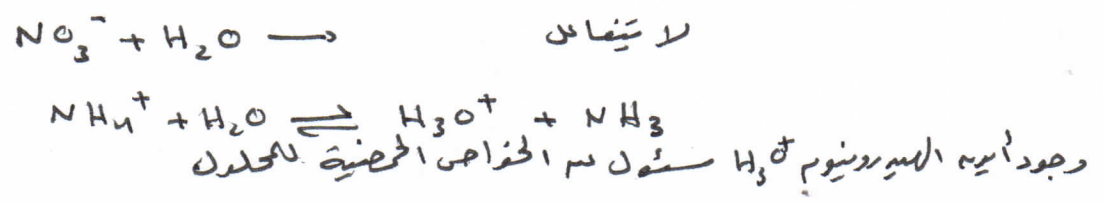 NO₃⁻ + H₂O ⟶ لا يتفاعل
NH₄⁺ + H₂O ⇌ H₃O⁺ + NH₃
وجود أيون الهيدرونيوم H₃O⁺ مسئول عن الخواص الحمضية للمحلول